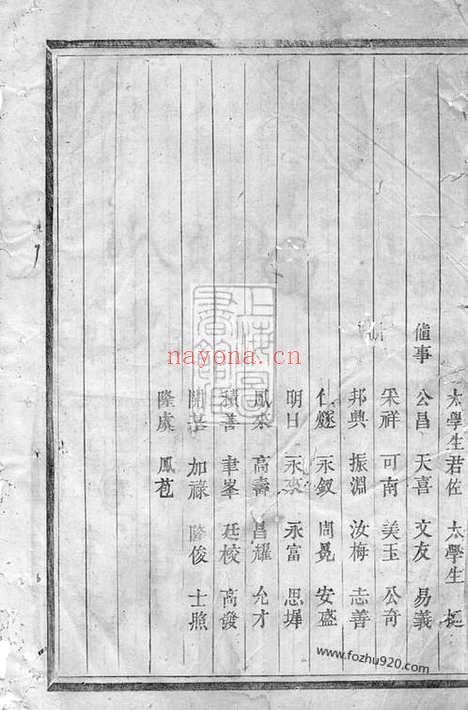 太學生君佐 太學生 挺
催事 公昌 天喜 文友 易義
采祥 可南 美玉 公奇
邦興 振淵 汝梅 志善
仁燧 永釵 周晃 安盛
明日 永來 永富 思墀
鳳來 高壽 昌耀 允才
積善 聿峯 廷棱 高發
加祿 隆俊 士照
隆虞 鳳苞
上海圖書館藏
nayona.cn
www.fozhu920.com